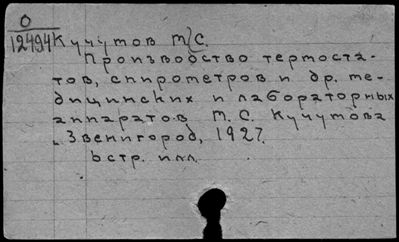 О
12494 Кучутов М.С.
Производство термоста-
тов, спирометров и др. ме-
дицинских и лабораторных
аппаратов М. С. Кучутова
Звенигород, 1927.
стр. илл.